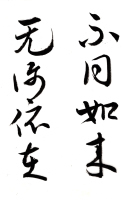 不同如来
无依在